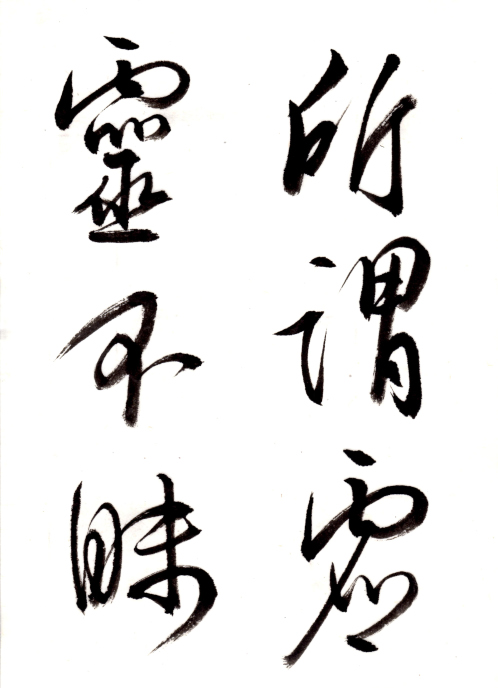 所謂虛
靈不昧